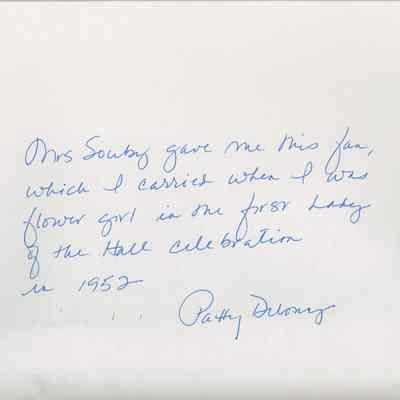 Mrs Sowby gave me this fan,
which I carried when I was
flower girl in the first Lady
of the Hall celebration
in 1952
Patty Delony